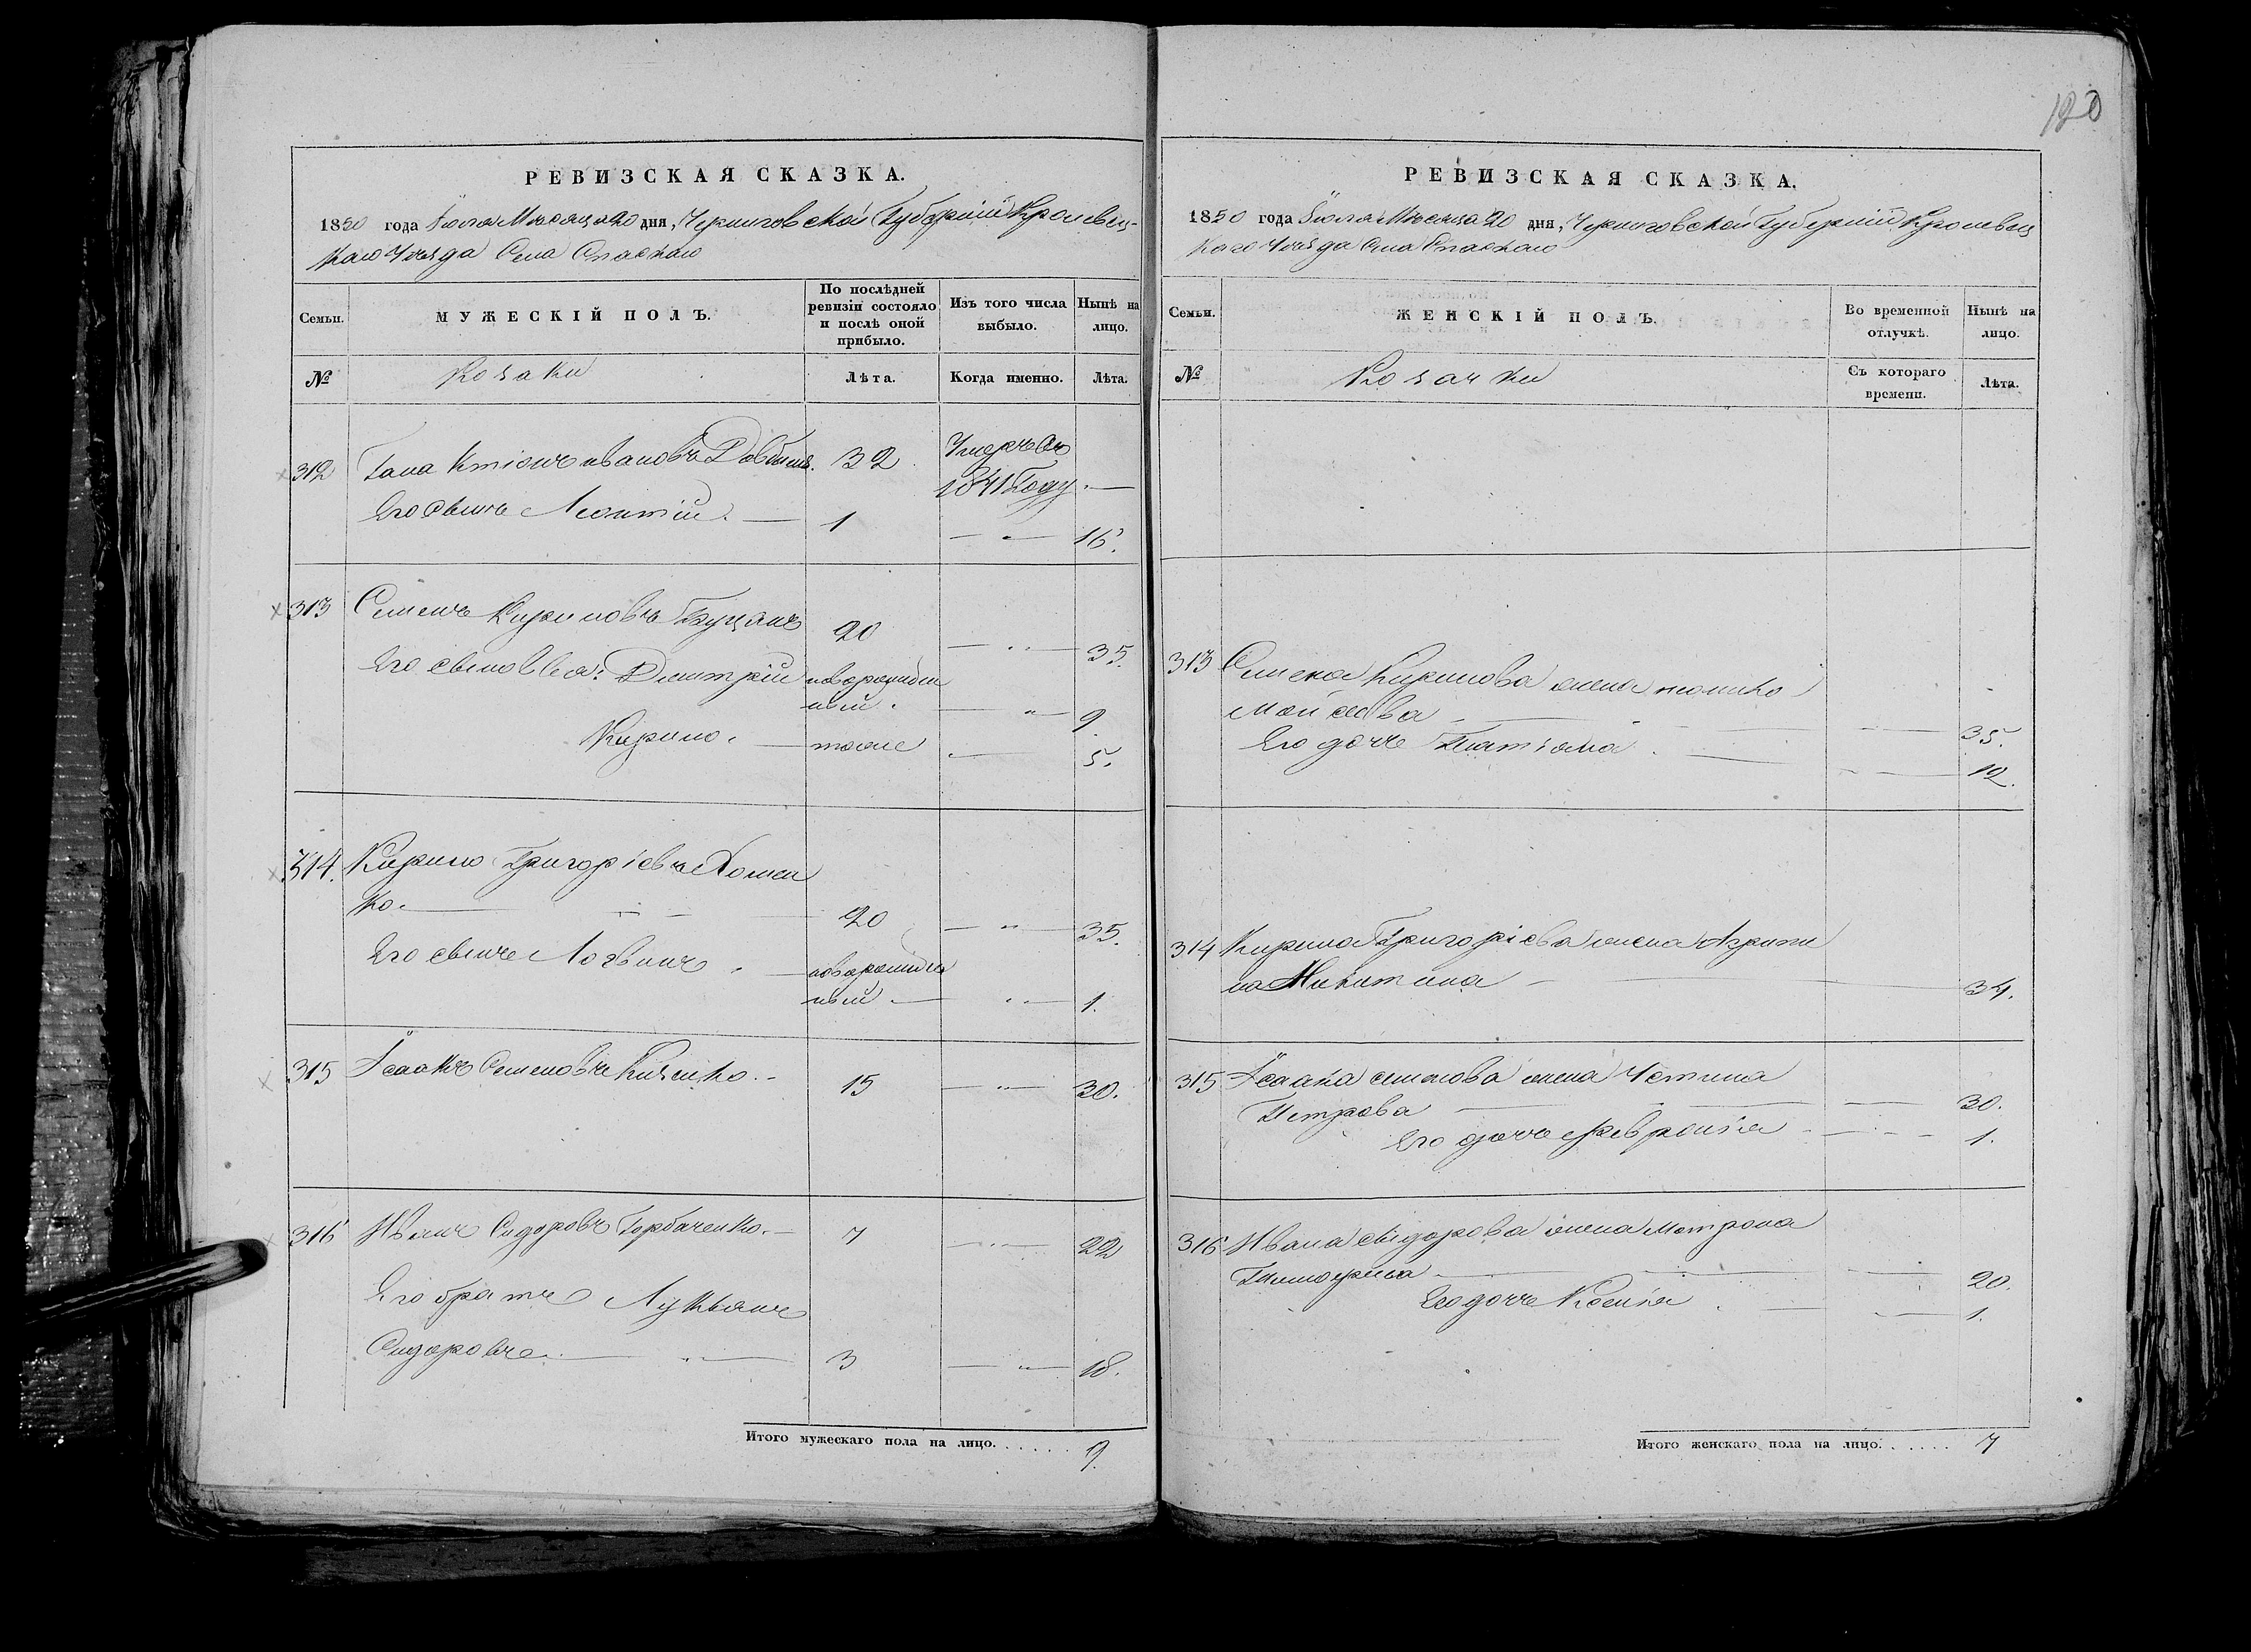 120
РЕВИЗСКАЯ СКАЗКА.
1850 года Іюля Мѣсяца 20 дня, Черниговской Губерніи Кролевец-
каго Уѣзда Села Спаскаго
Семьи.
МУЖЕСКІЙ ПОЛЪ.
По послѣдней ревизіи состояло и послѣ оной прибыло.
Изъ того числа выбыло.
Нынѣ на лицо.
№
Козаки
Лѣта.
Когда именно.
Лѣта.
312 Ивановъ 32 Умеръ въ
1841 Году. —
Его сынъ Леонтій. — 1 — " — 16.
313 Семенъ Кириловъ Буцанъ 20 — " — 35.
Его сыновья: Дмитрій новорожден
ный. — " — 9
Кирило. — тоже — 5.
314. Кирило Григоріевъ Хомен
ко. — 20 — " — 35.
Его сынъ Логвинъ. — новорожден
ный. — " — 1.
315 Ісаакъ Семеновъ Кизенко. — 15 — " — 30.
316 Иванъ Сидоровъ Горбаченко. — 7 — " — 22
Его братъ Лукьянъ
Сидоровъ. — " — 3 — " — 18.
Итого мужескаго пола на лицо. . . . . . 9
РЕВИЗСКАЯ СКАЗКА.
1850 года Іюля Мѣсяца 20 дня, Черниговской Губерніи Кролевец
каго Уѣзда Села Спаскаго
Семьи.
ЖЕНСКІЙ ПОЛЪ.
Во временной отлучкѣ.
Нынѣ на лицо.
№
Козачки
Съ котораго времени.
Лѣта.
313 Семена Кирилова жена
Мойсеева — 35.
Его дочь Татіана. — 12.
314 Кирила Григоріева жена Агрипи
на Никитина — 34.
315 Ісаака Семенова жена Устина
Петрова — 30.
Его дочь Февронія — 1.
316 Ивана Сидорова жена Матрона
— 20.
Его дочь Ксенія. — 1.
Итого женскаго пола на лицо. . . . . . 7